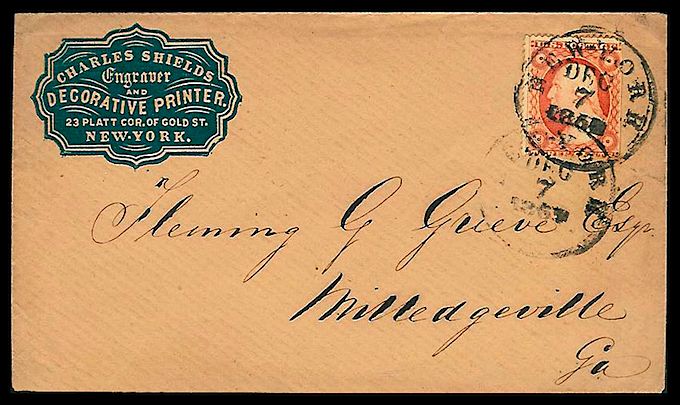 CHARLES SHIELDS
Engraver
AND
DECORATIVE PRINTER.
23 PLATT COR. OF GOLD ST.
NEW-YORK.
NEW YORK
DEC
7
DEC
7
Fleming G Grieve Esqr.
Milledgeville
Ga